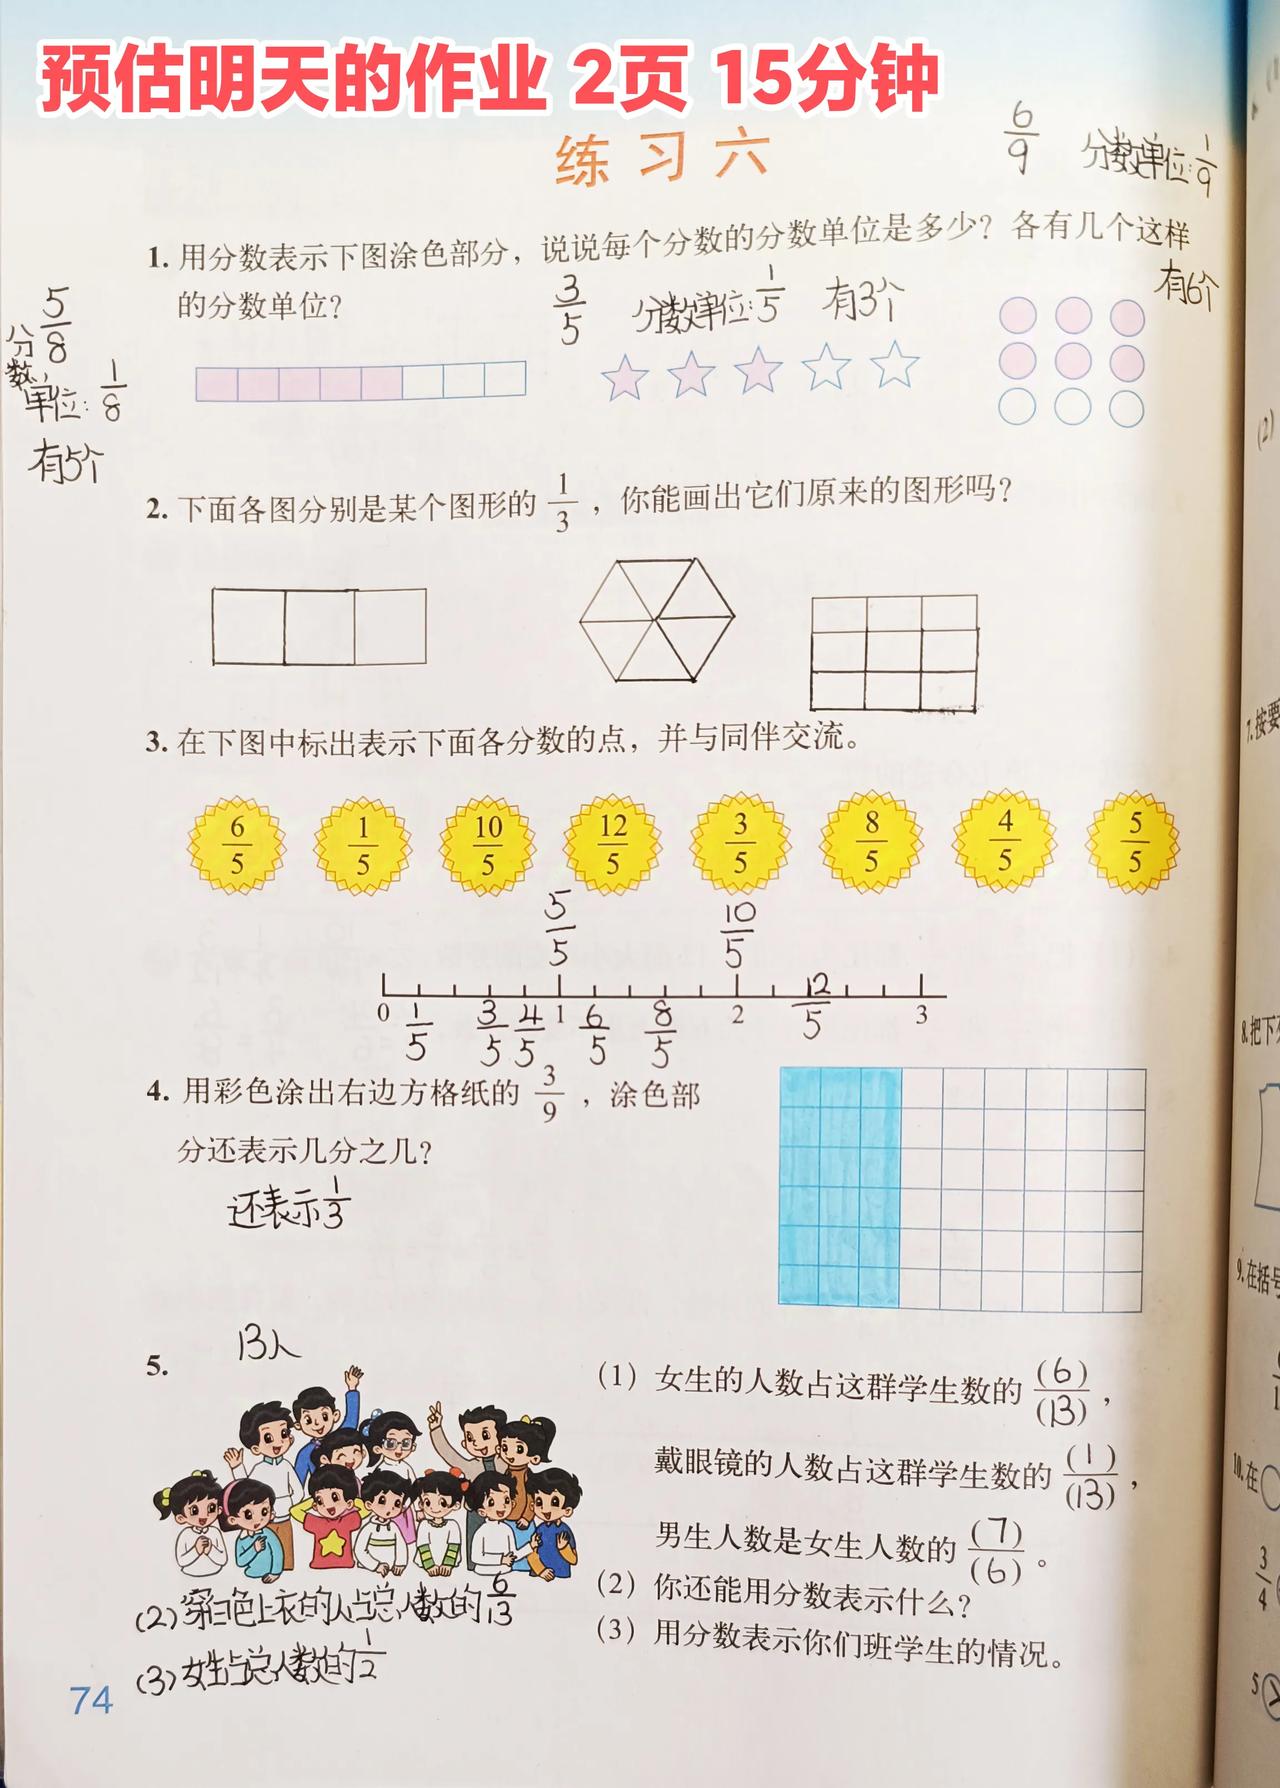 预估明天的作业 2页 15分钟
练习六
6/9 分数单位:1/9
1. 用分数表示下图涂色部分，说说每个分数的分数单位是多少？各有几个这样
的分数单位？
有6个
3/5 分数单位:1/5 有3个
5/8
分数单位:1/8
有5个
2. 下面各图分别是某个图形的 1/3，你能画出它们原来的图形吗？
3. 在下图中标出表示下面各分数的点，并与同伴交流。
6/5 1/5 10/5 12/5 3/5 8/5 4/5 5/5
5/5 10/5
0 1/5 3/5 4/5 1 6/5 8/5 2 12/5 3
4. 用彩色涂出右边方格纸的 3/9，涂色部
分还表示几分之几？
还表示1/3
5.
13人
(1) 女生的人数占这群学生数的 (6)/(13)，
戴眼镜的人数占这群学生数的 (1)/(13)，
男生人数是女生人数的 (7)/(6)。
(2) 你还能用分数表示什么？
(3) 用分数表示你们班学生的情况。
(2) 穿白色上衣的人占总人数的6/13
(3) 女生占总人数的1/2
74
(2)
7. 按要
8. 把下列
9. 在括号
10. 在
3/4
5